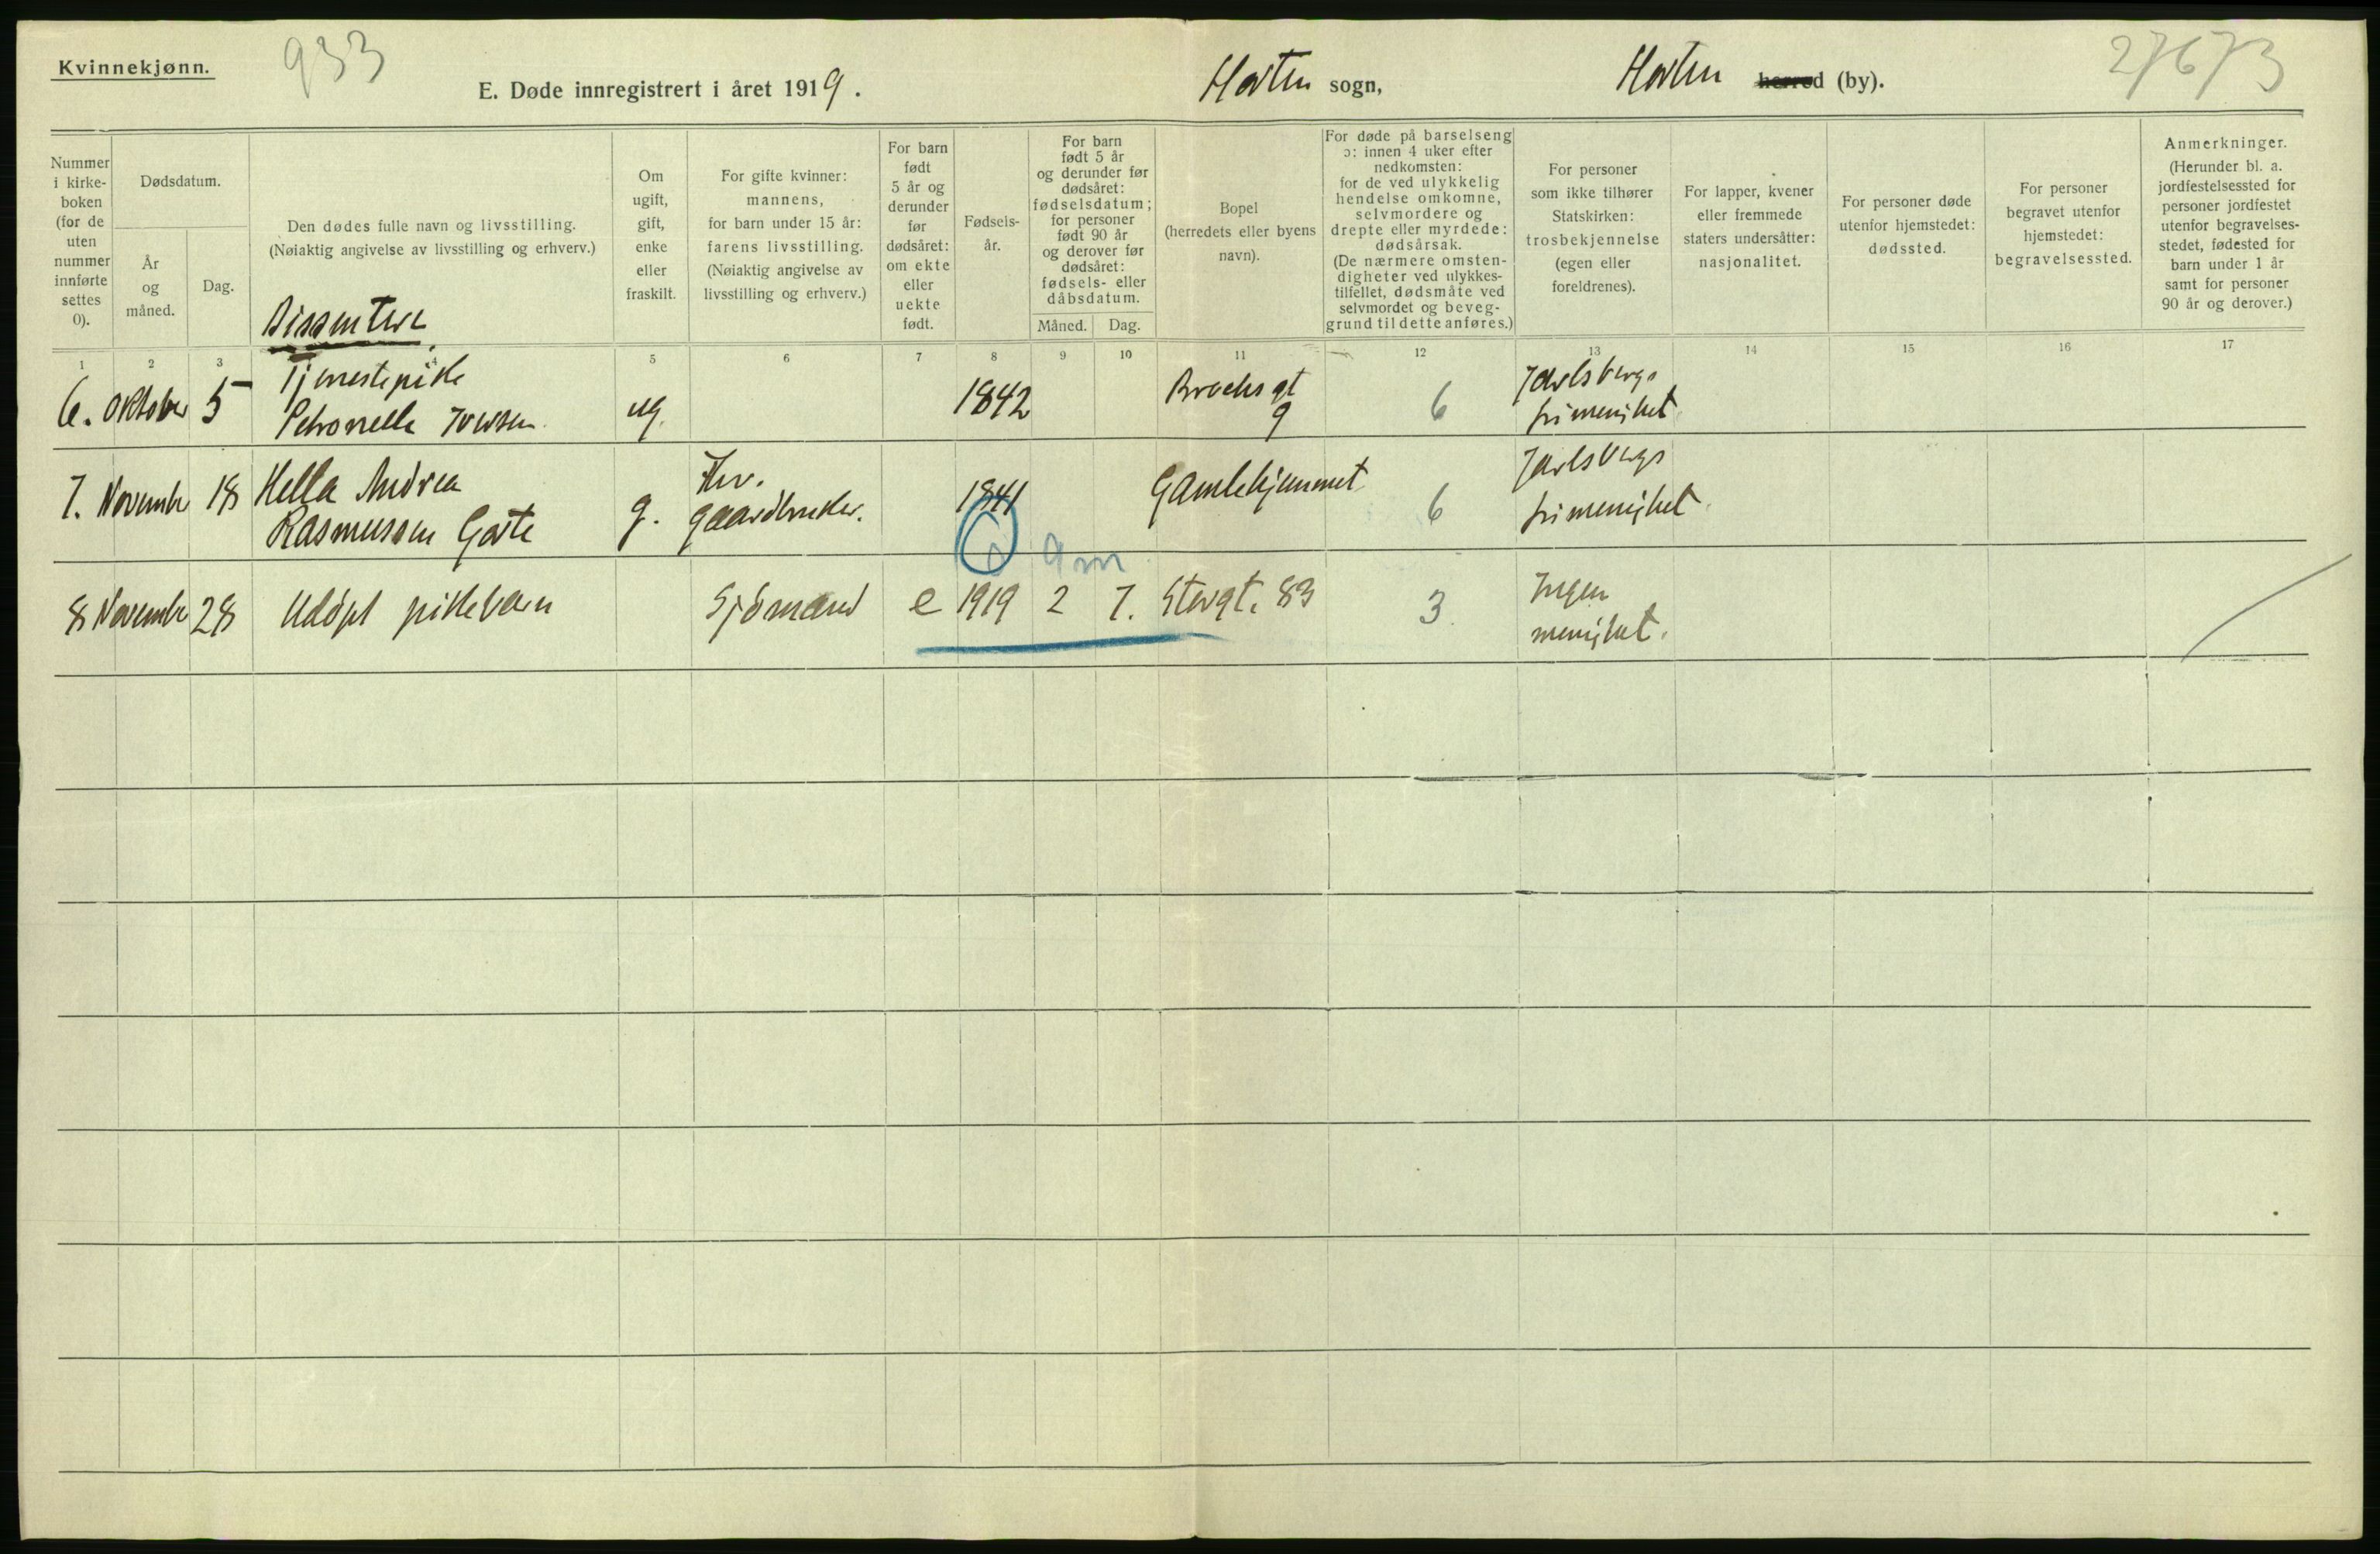 Kvinnekjønn.
933
E. Døde innregistrert i året 1919.
Horten sogn,
Horten herred (by).
27673
Nummer i kirkeboken (for de uten nummer innførte settes 0).
Dødsdatum.
År og måned.
Dag.
Den dødes fulle navn og livsstilling.
(Nøiaktig angivelse av livsstilling og erhverv.)
Dissentere
Om ugift, gift, enke eller fraskilt.
For gifte kvinner: mannens, for barn under 15 år: farens livsstilling.
(Nøiaktig angivelse av livsstilling og erhverv.)
For barn født 5 år og derunder før dødsåret: om ekte eller uekte født.
Fødselsår.
For barn født 5 år og derunder før dødsåret: fødselsdatum; for personer født 90 år og derover før dødsåret: fødsels- eller dåbsdatum.
Måned.
Dag.
Bopel (herredets eller byens navn).
For døde på barselseng ɔ: innen 4 uker efter nedkomsten: for de ved ulykkelig hendelse omkomne, selvmordere og drepte eller myrdede: dødsårsak.
(De nærmere omstendigheter ved ulykkestilfellet, dødsmåte ved selvmordet og beveggrund til dette anføres.)
For personer som ikke tilhører Statskirken: trosbekjennelse (egen eller foreldrenes).
For lapper, kvener eller fremmede staters undersåtter: nasjonalitet.
For personer døde utenfor hjemstedet: dødssted.
For personer begravet utenfor hjemstedet: begravelsessted.
Anmerkninger.
(Herunder bl. a. jordfestelsessted for personer jordfestet utenfor begravelsesstedet, fødested for barn under 1 år samt for personer 90 år og derover.)
1 2 3 4 5 6 7 8 9 10 11 12 13 14 15 16 17
6. Oktober 5 Tjenestepike
Petronelle Iversen ug. 1842 Brochs gt
9 6 Jarlsbergs
frimenighet
7. November 18 Hella Andrea
Rasmussen Garte g. Fhv.
gaardbruker. 1841 Gamlehjemmet 6 Jarlsbergs
frimenighet
9 m
8 November 28 Udöpt pikebarn Sjömand e 1919 2 7. Storgt. 83 3 Ingen
menighet.